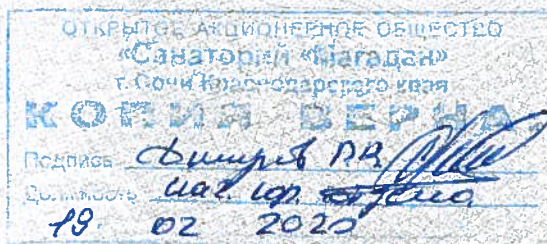 ОТКРЫТОЕ АКЦИОНЕРНОЕ ОБЩЕСТВО
«Санаторий «Магадан»
г. Сочи Краснодарского края
КОПИЯ ВЕРНА
Подпись
Должность нач. юр. отдела
19 02 2020